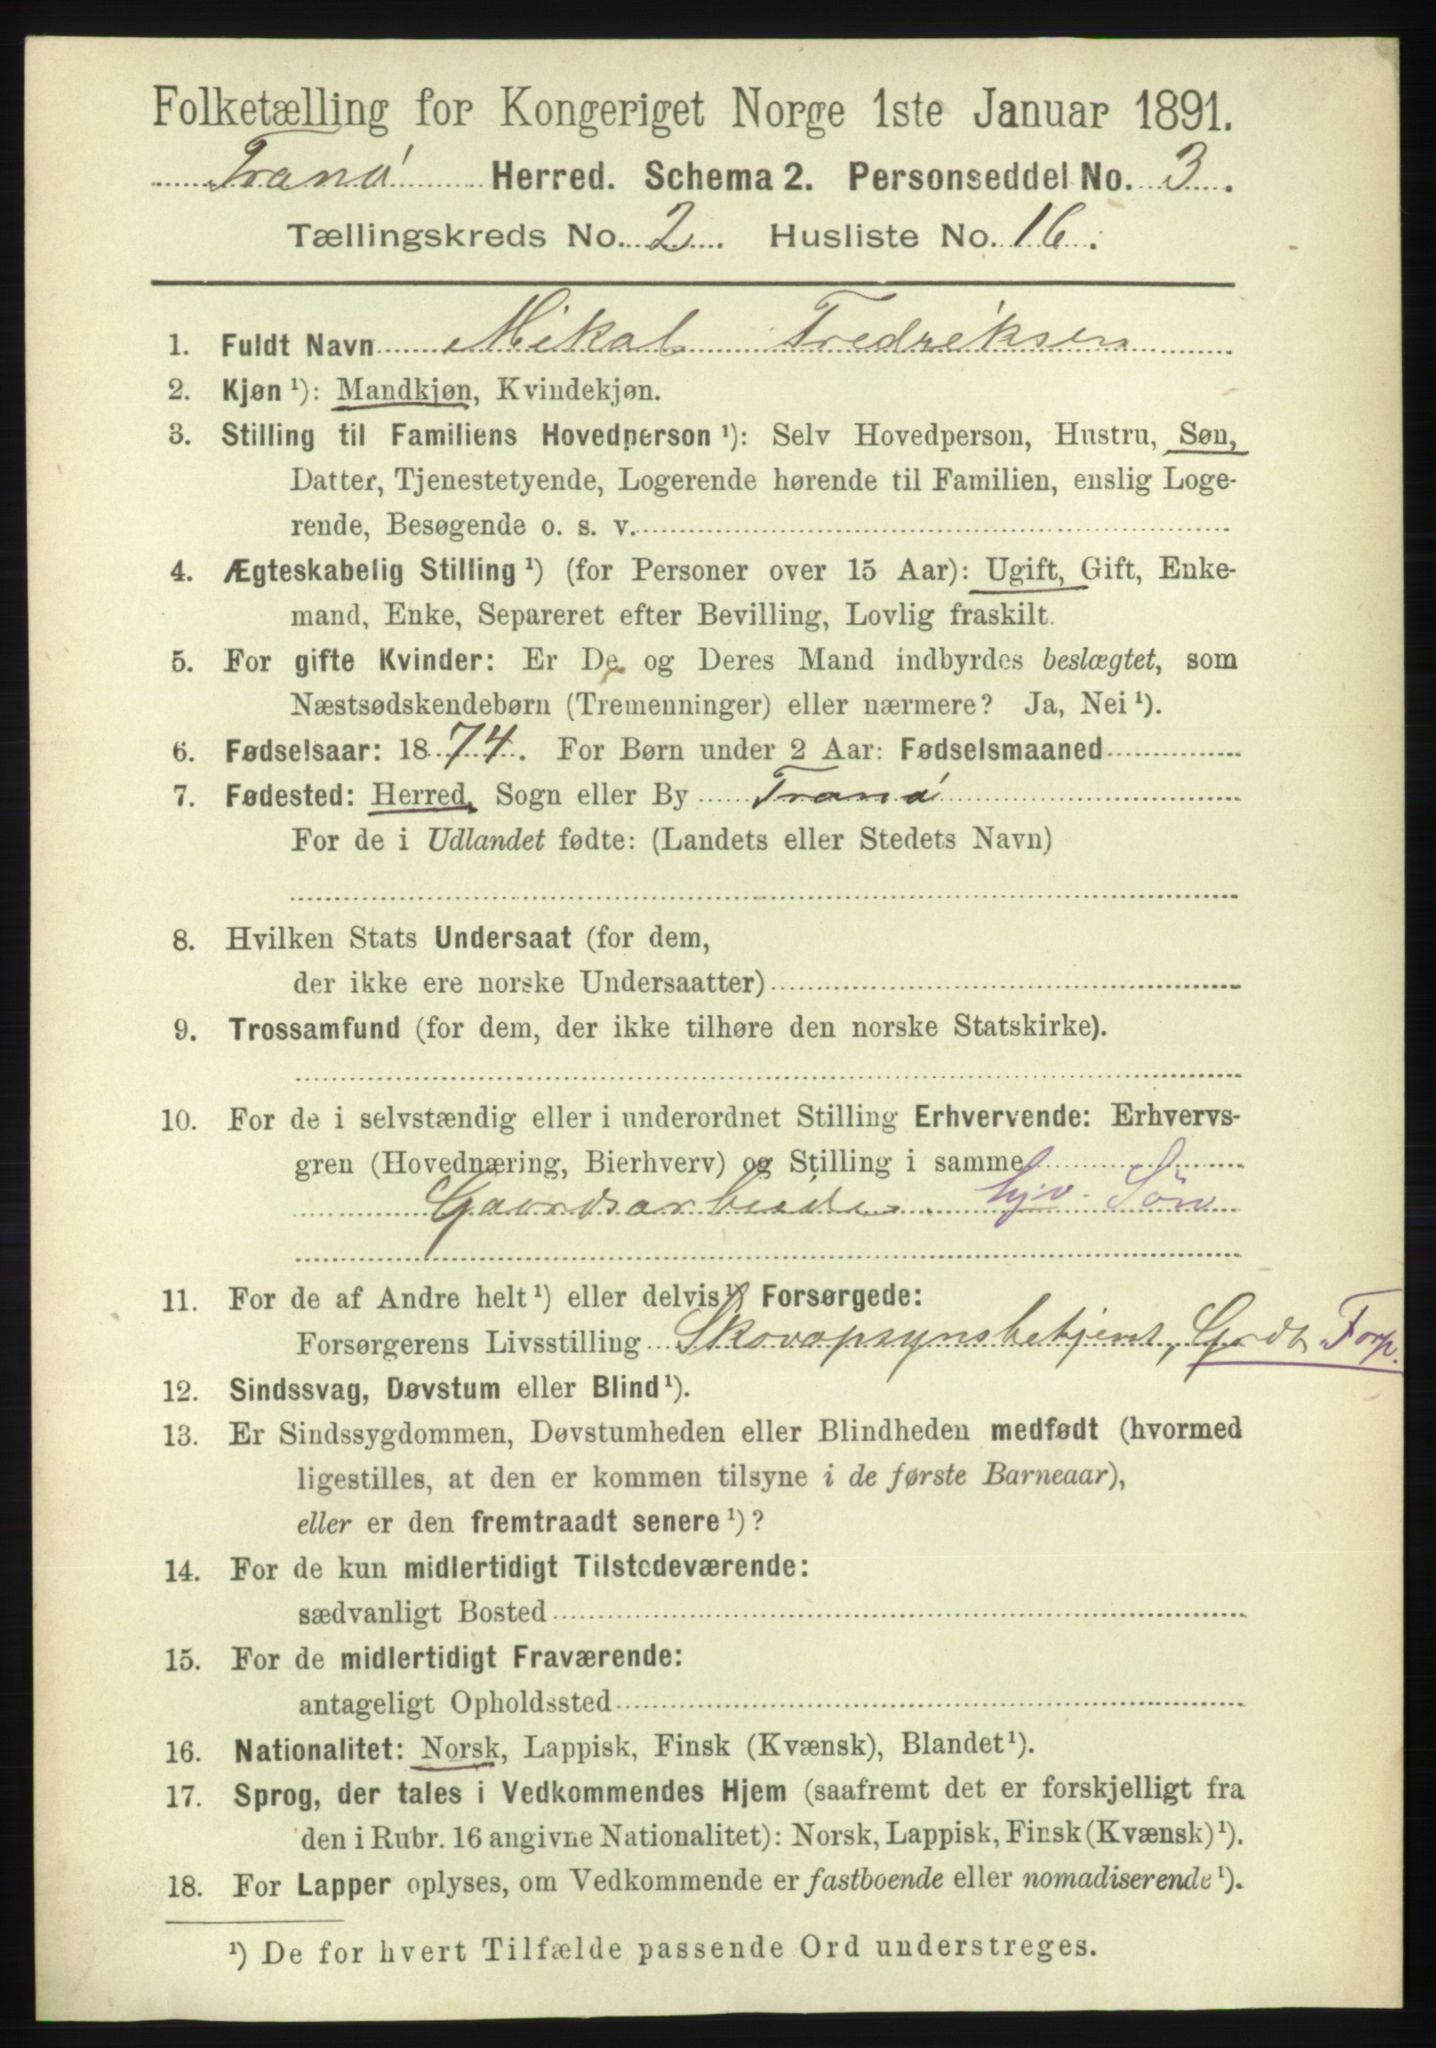 Folketælling for Kongeriget Norge 1ste Januar 1891.
Tranø Herred. Schema 2. Personseddel No. 3.
Tællingskreds No. 2. Husliste No. 16.
1. Fuldt Navn Mikal Fredriksen
2. Kjøn ¹): Mandkjøn, Kvindekjøn.
3. Stilling til Familiens Hovedperson ¹): Selv Hovedperson, Hustru, Søn,
Datter, Tjenestetyende, Logerende hørende til Familien, enslig Loge-
rende, Besøgende o. s. v.
4. Ægteskabelig Stilling ¹) (for Personer over 15 Aar): Ugift, Gift, Enke-
mand, Enke, Separeret efter Bevilling, Lovlig fraskilt.
5. For gifte Kvinder: Er De og Deres Mand indbyrdes beslægtet, som
Næstsødskendebørn (Tremenninger) eller nærmere? Ja, Nei ¹).
6. Fødselsaar: 1874. For Børn under 2 Aar: Fødselsmaaned
7. Fødested: Herred, Sogn eller By Tranø
For de i Udlandet fødte: (Landets eller Stedets Navn)
8. Hvilken Stats Undersaat (for dem,
der ikke ere norske Undersaatter)
9. Trossamfund (for dem, der ikke tilhøre den norske Statskirke).
10. For de i selvstændig eller i underordnet Stilling Erhvervende: Erhvervs-
gren (Hovednæring, Bierhverv) og Stilling i samme
Gaardsarbeide. hjv. Sön
11. For de af Andre helt ¹) eller delvis ¹) Forsørgede:
Forsørgerens Livsstilling Skovopsynsbetjent, Grdb Forp.
12. Sindssvag, Døvstum eller Blind ¹).
13. Er Sindssygdommen, Døvstumheden eller Blindheden medfødt (hvormed
ligestilles, at den er kommen tilsyne i de første Barneaar),
eller er den fremtraadt senere ¹)?
14. For de kun midlertidigt Tilstedeværende:
sædvanligt Bosted
15. For de midlertidigt Fraværende:
antageligt Opholdssted
16. Nationalitet: Norsk, Lappisk, Finsk (Kvænsk), Blandet ¹).
17. Sprog, der tales i Vedkommendes Hjem (saafremt det er forskjelligt fra
den i Rubr. 16 angivne Nationalitet): Norsk, Lappisk, Finsk (Kvænsk) ¹).
18. For Lapper oplyses, om Vedkommende er fastboende eller nomadiserende ¹).
¹) De for hvert Tilfælde passende Ord understreges.